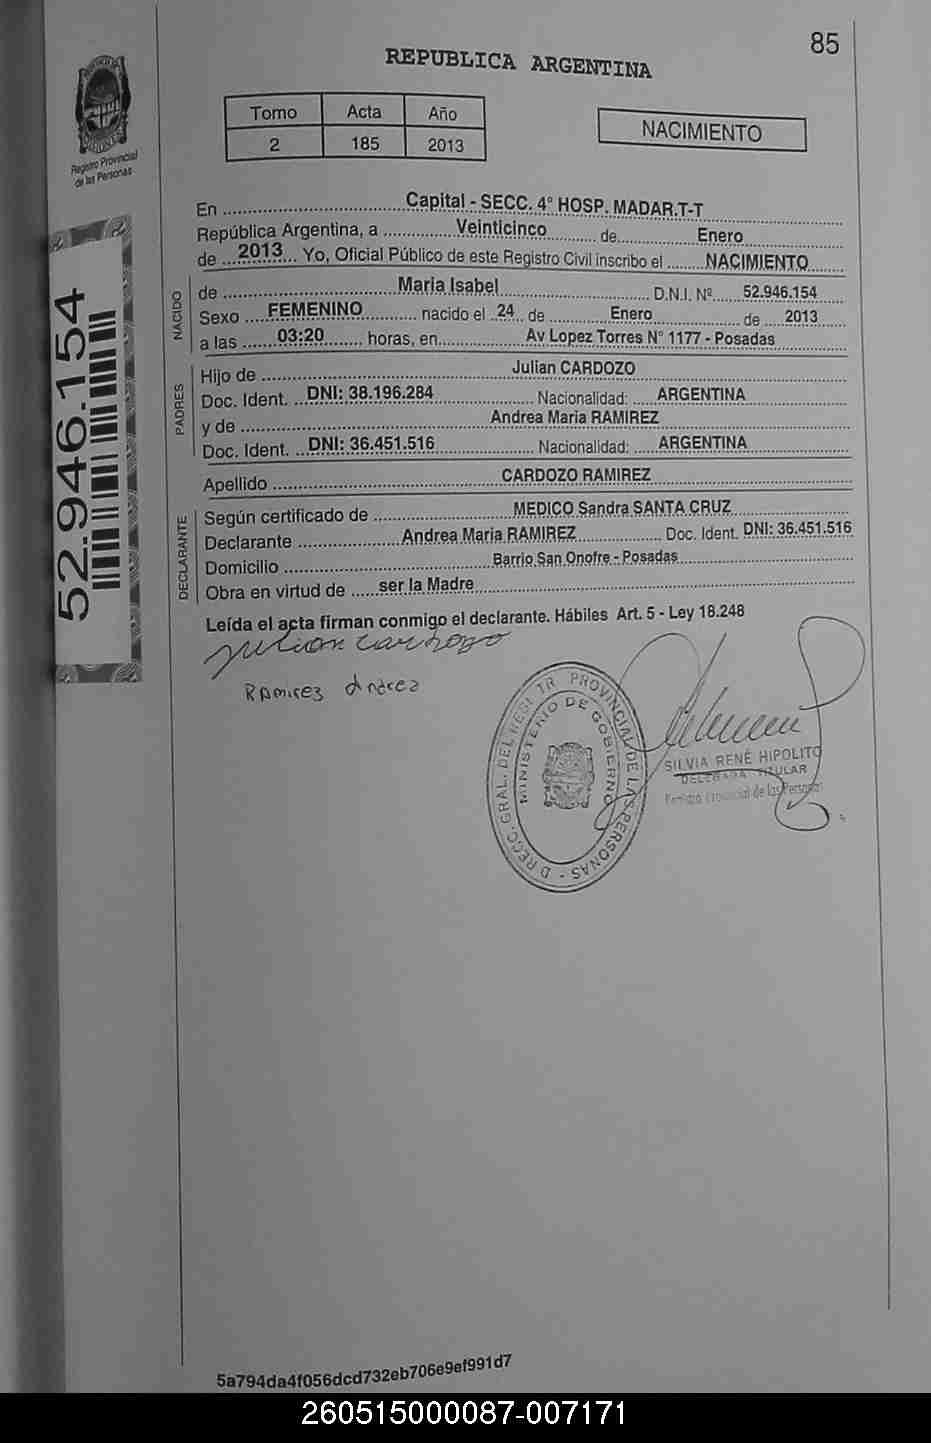 85
REPUBLICA ARGENTINA
Tomo Acta Año
2 185 2013
NACIMIENTO
Registro Provincial
de las Personas
52.946.154
En ........ Capital - SECC. 4° HOSP. MADAR.T-T
República Argentina, a ........ Veinticinco ........ de ........ Enero ........
de ... 2013 ... Yo, Oficial Público de este Registro Civil inscribo el ........ NACIMIENTO ........
NACIDO
de ........ Maria Isabel ........ D.N.I. Nº ........ 52.946.154
Sexo .... FEMENINO ........ nacido el .. 24 .. de ........ Enero ........ de .... 2013
a las ...... 03:20 ........ horas, en ........ Av Lopez Torres N° 1177 - Posadas
PADRES
Hijo de ........ Julian CARDOZO
Doc. Ident. ... DNI: 38.196.284 ........ Nacionalidad: .... ARGENTINA
y de ........ Andrea Maria RAMIREZ
Doc. Ident. ... DNI: 36.451.516 ........ Nacionalidad: .... ARGENTINA
Apellido ........ CARDOZO RAMIREZ
DECLARANTE
Según certificado de ........ MEDICO Sandra SANTA CRUZ
Declarante ........ Andrea Maria RAMIREZ ........ Doc. Ident. DNI: 36.451.516
Domicilio ........ Barrio San Onofre - Posadas
Obra en virtud de ..... ser la Madre
Leída el acta firman conmigo el declarante. Hábiles Art. 5 - Ley 18.248
julian cardozo
RAmirez Andrea
D RECC. GRAL. DEL REGISTR PROVINCIAL DE LAS PERSONAS -
MINISTERIO DE GOBIERNO
SILVIA RENÉ HIPOLITO
DELEGADA TITULAR
Registro Provincial de las Personas
5a794da4f056dcd732eb706e9ef991d7
260515000087-007171